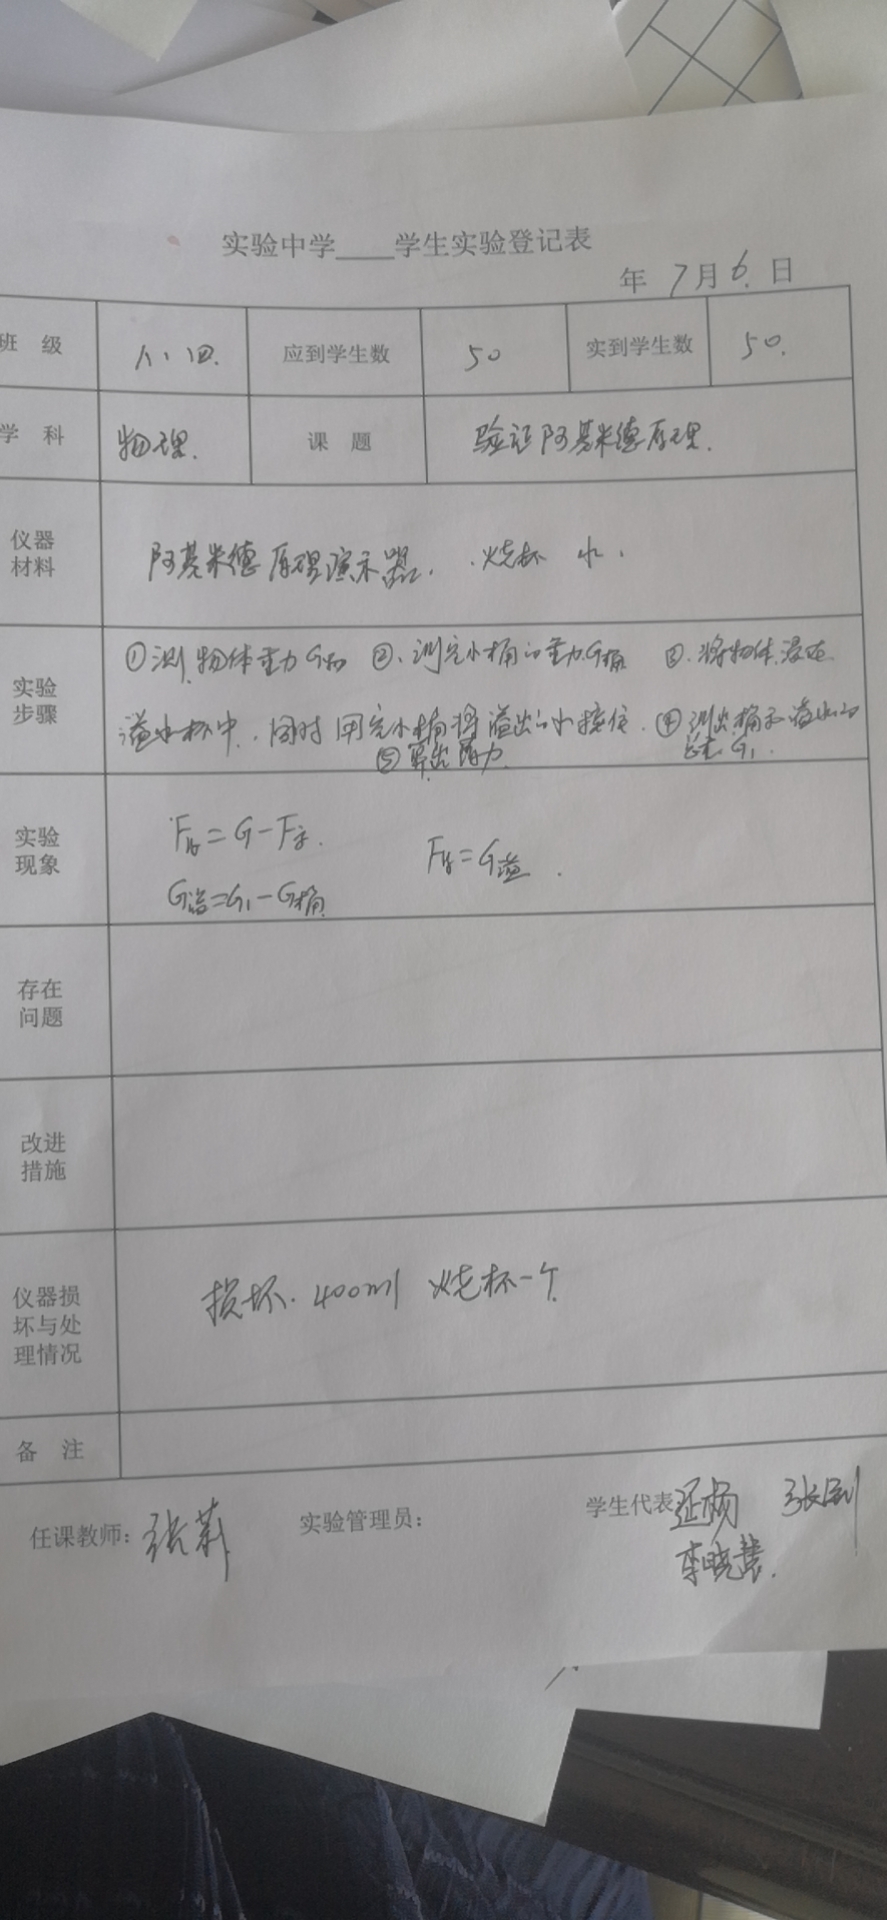 实验中学____学生实验登记表
年 7月6.日
班 级 八.四. 应到学生数 50 实到学生数 50.
学 科 物理. 课 题 验证阿基米德原理.
仪器
材料
阿基米德原理演示器. 烧杯 水.
实验
步骤
①测物体重力G物 ②.测空小桶的重力G桶 ③.将物体浸在
溢水杯中.同时用空小桶将溢出的水接住.④测出桶和溢水的
总重G1.
⑤算出浮力
实验
现象
F浮=G-F示.
F浮=G溢.
G溢=G1-G桶
存在
问题
改进
措施
仪器损
坏与处
理情况
损坏.400ml 烧杯一个
备 注
任课教师：张莉 实验管理员： 学生代表
李晓慧.